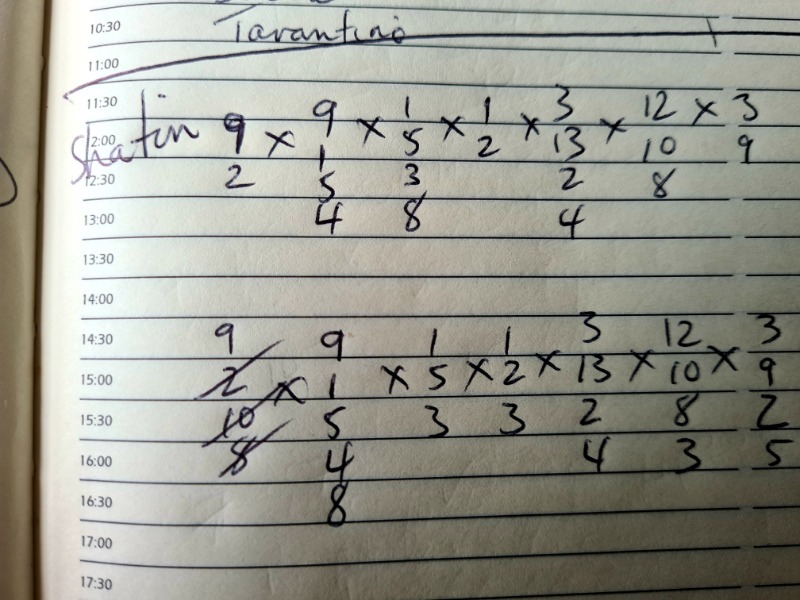 10:30 Tarantino
11:00
11:30
Shatin 9 × 9 × 1 × 1 × 3 × 12 × 3
12:00 1 5 2 13 10 9
12:30 2 5 3 2 8
13:00 4 8 4
13:30
14:00
14:30 9 9 1 1 3 12 3
15:00 2 × 1 × 5 × 2 × 13 × 10 × 9
15:30 10 5 3 3 2 8 2
16:00 8 4 4 3 5
16:30 8
17:00
17:30